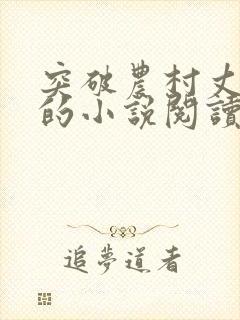 突破農村丈
的小說閱讀
追夢道者